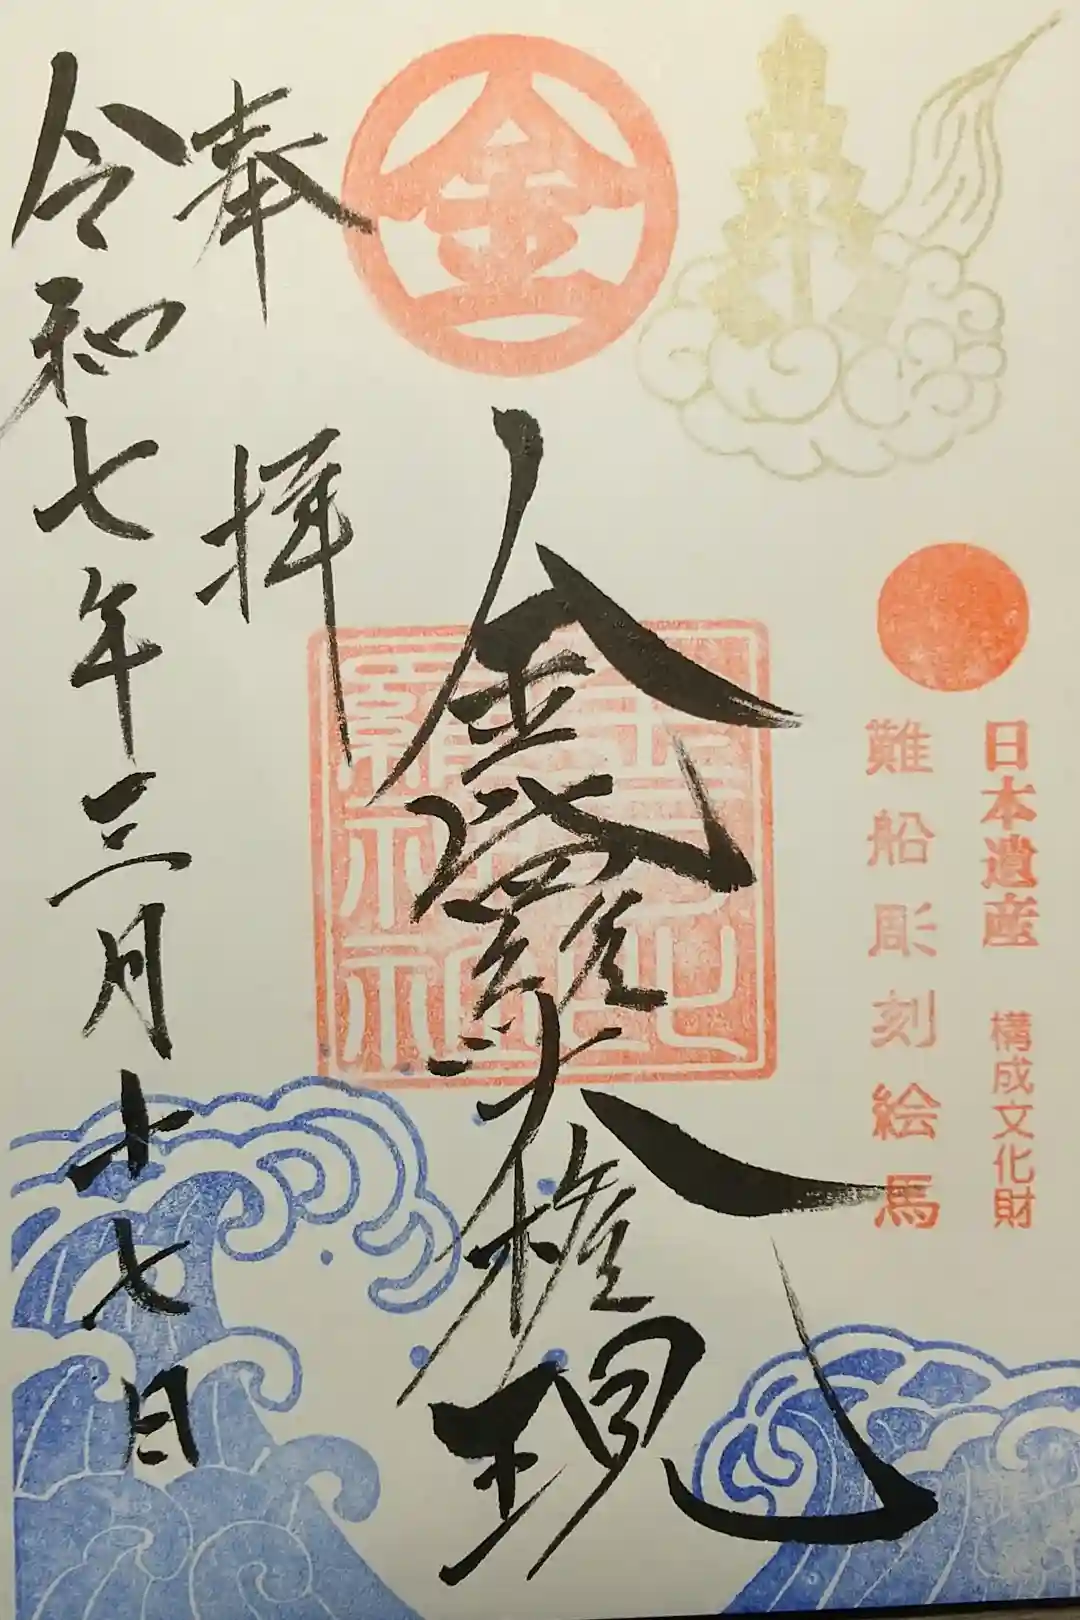 日本遺産 構成文化財
難船彫刻絵馬
金
金毘羅大権現
金刀比
羅神社
奉拝
令和七年三月十七日